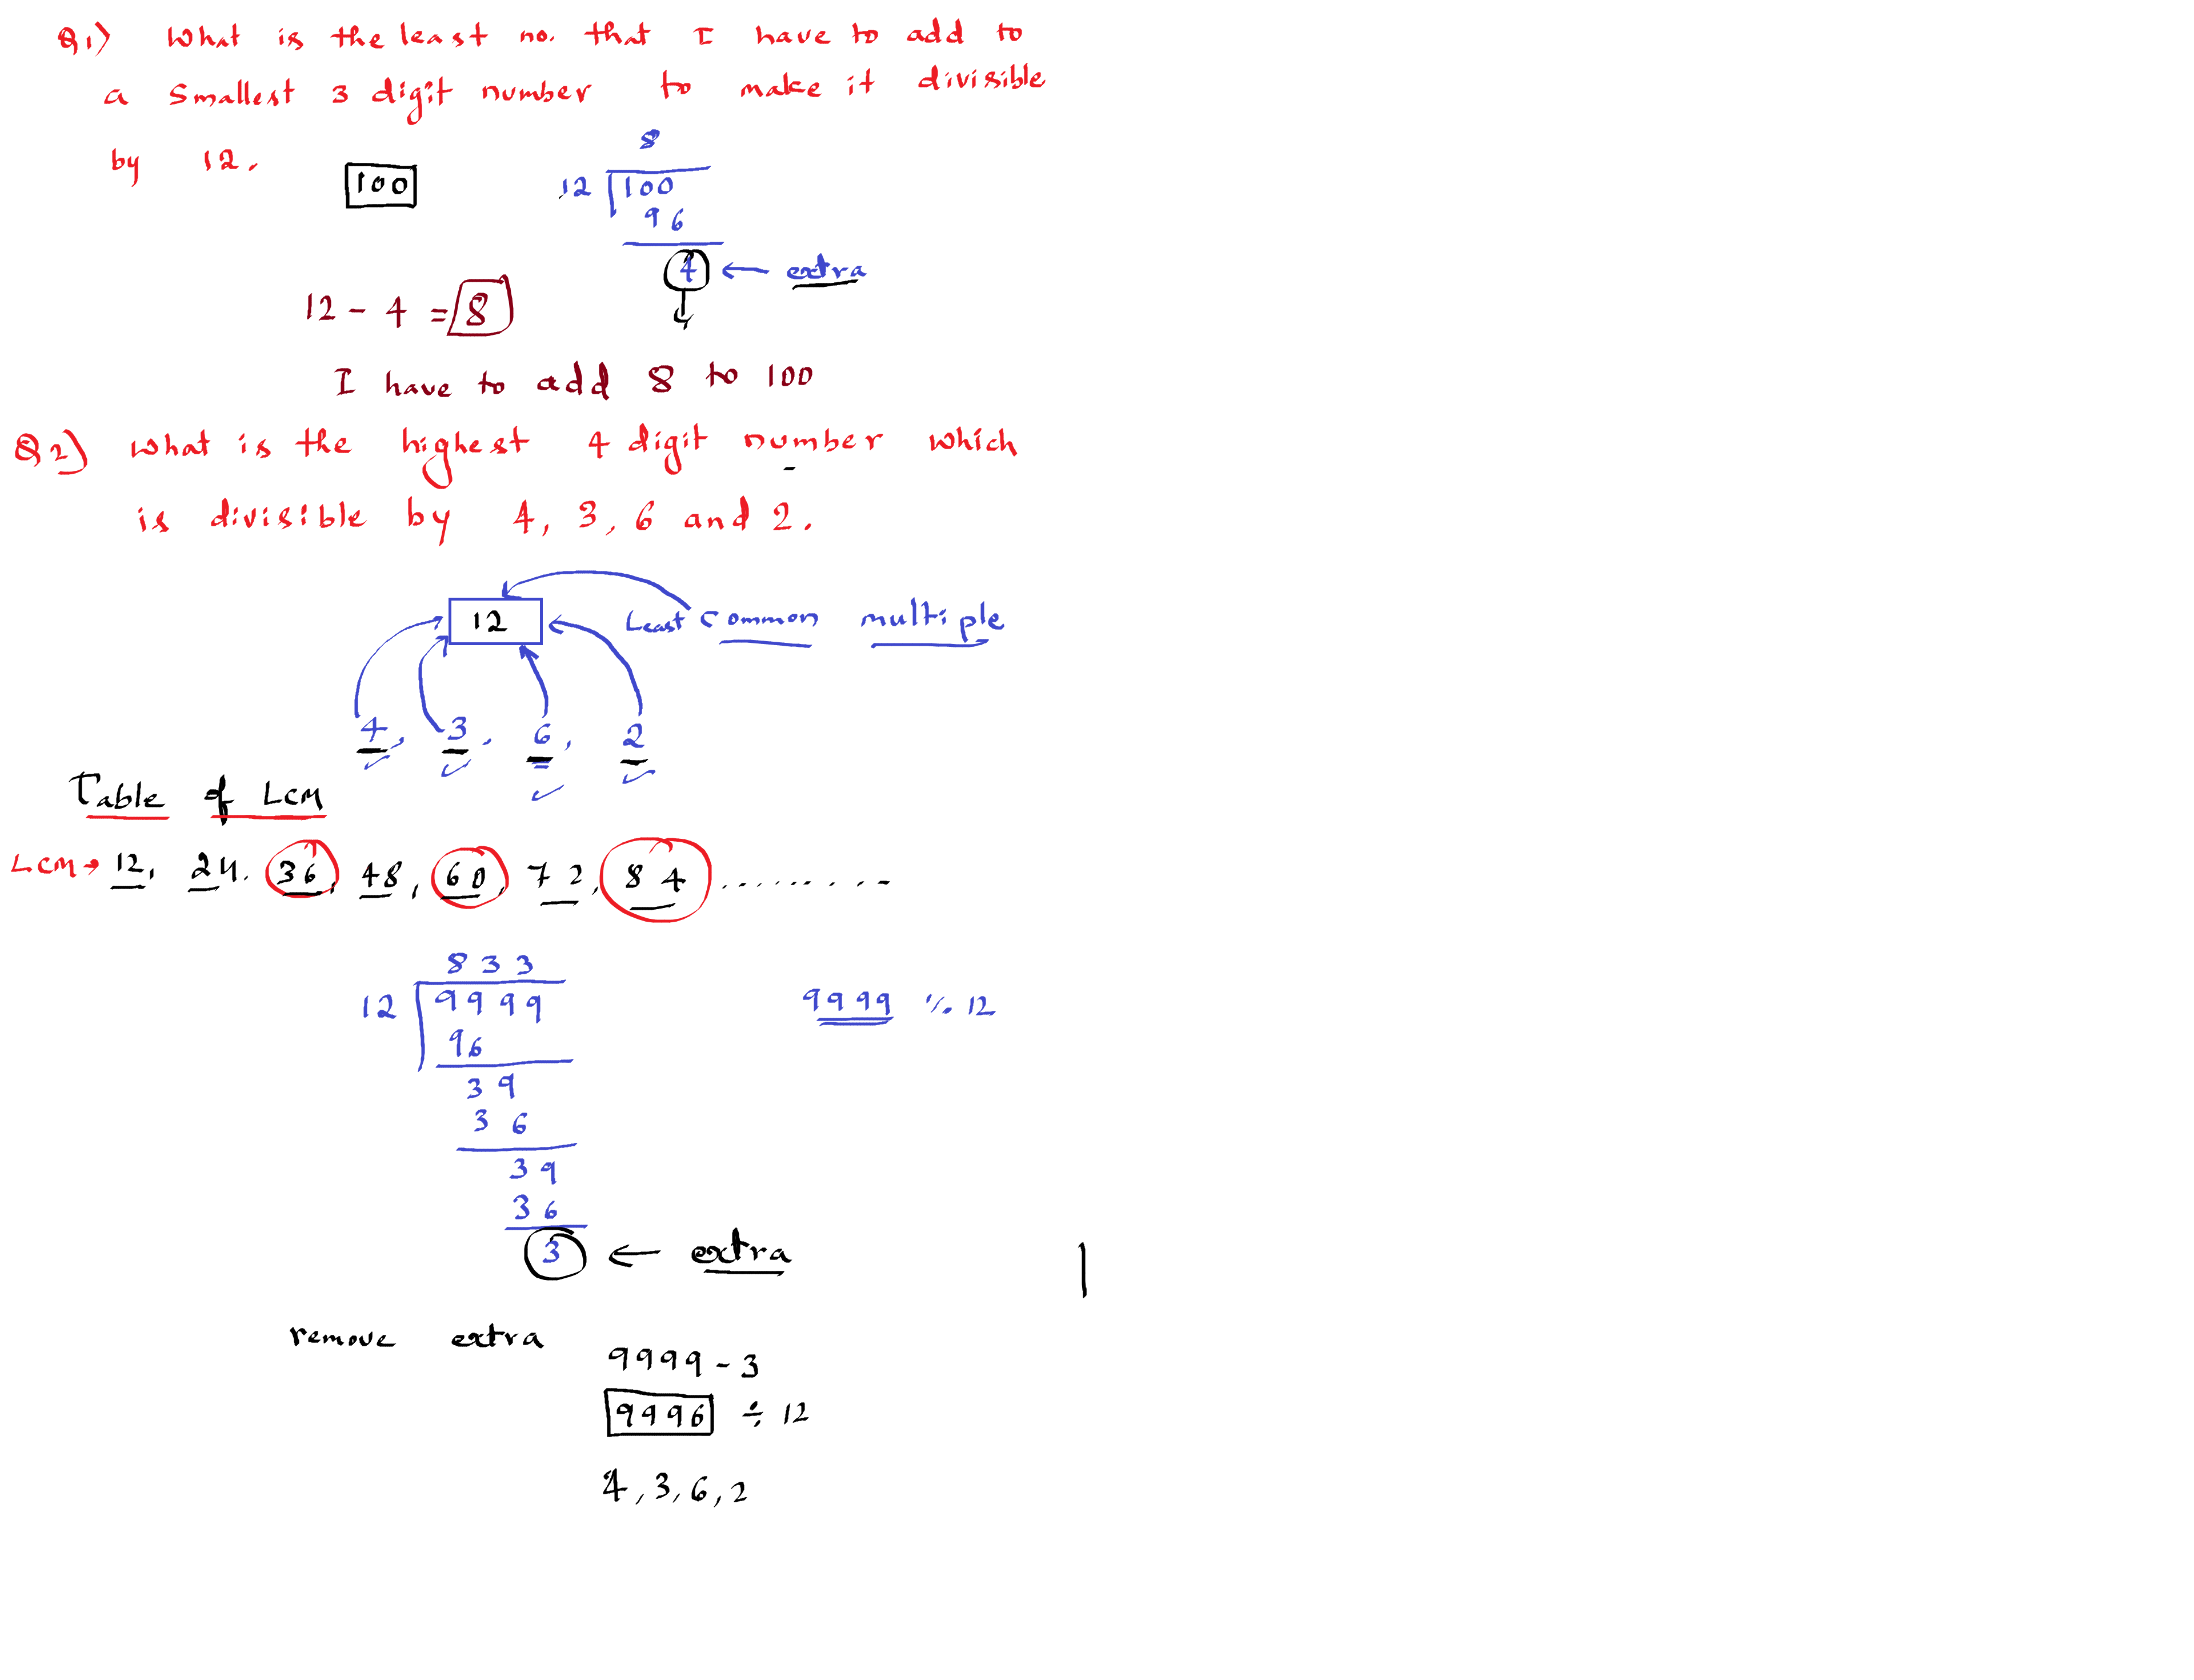 Q1) What is the least no. that I have to add to
a smallest 3 digit number to make it divisible
by 12.
100
8
12 100
96
4 ← extra
12 - 4 = 8
I have to add 8 to 100
Q2) What is the highest 4 digit number which
is divisible by 4, 3, 6 and 2.
12 Least Common multiple
4, 3, 6, 2
Table of LCM
LCM → 12, 24, 36, 48, 60, 72, 84 .........
833
12 9999
9999 % 12
96
39
36
39
36
3 ← extra
remove extra
9999 - 3
9996 ÷ 12
4, 3, 6, 2